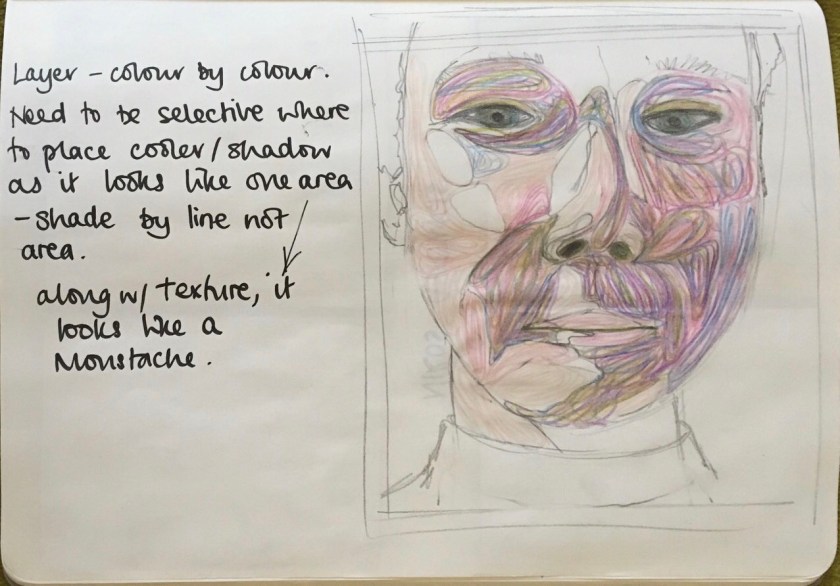 Layer - colour by colour.
Need to be selective where
to place cooler/shadow
as it looks like one area
- shade by line not
area.
along w/ texture, it
looks like a
Moustache.